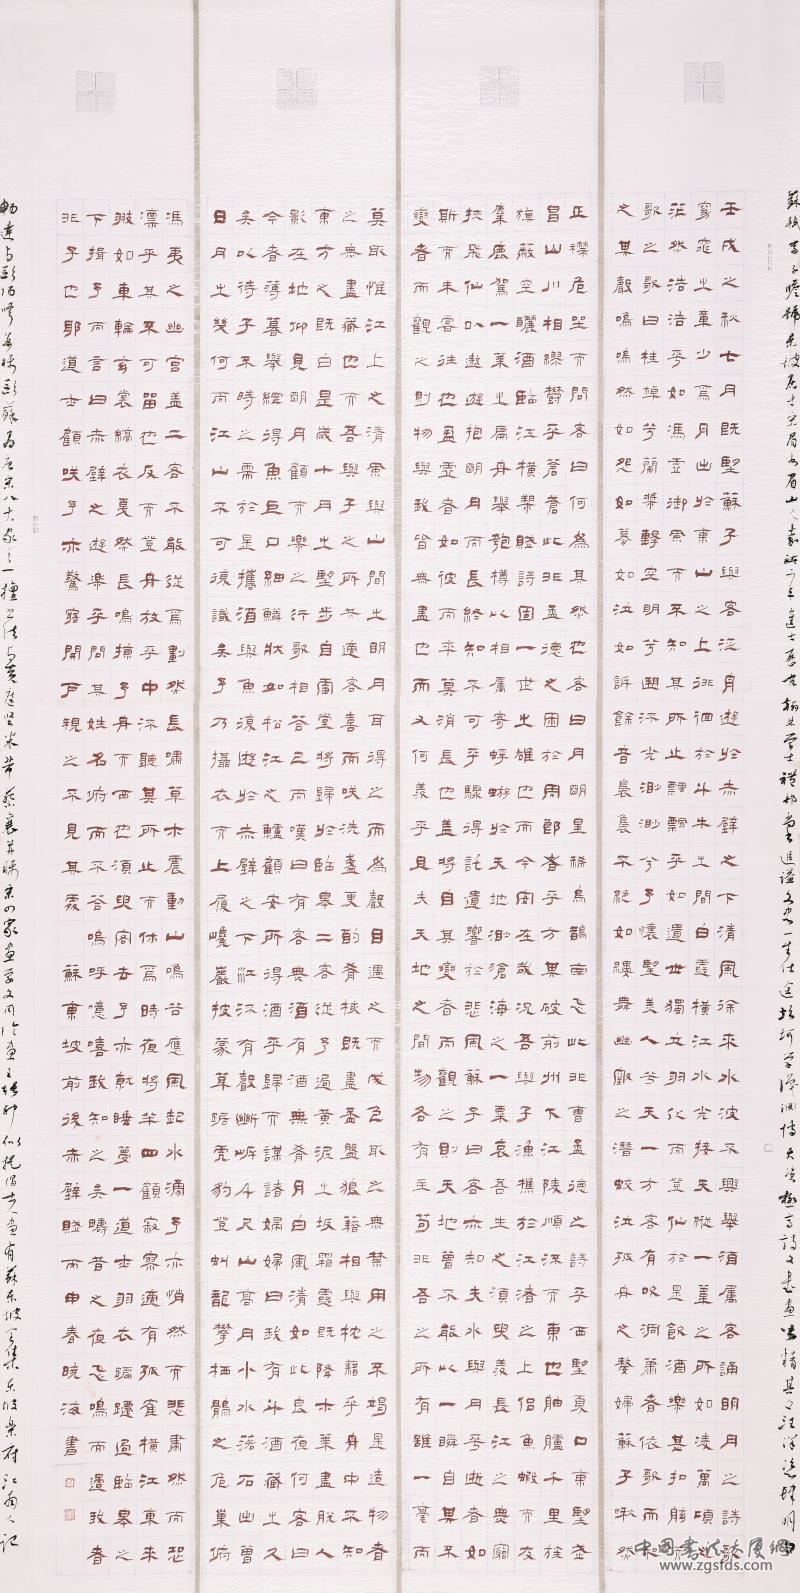 蘇軾字子瞻號東坡居士宋眉山人嘉祐二年進士歷官翰林學士禮部尚書追謚文忠一生仕途坎坷學識淵博天資極高詩文書畫皆精其文汪洋恣肆明白
壬戌之秋七月既望蘇子與客泛舟遊於赤壁之下清風徐來水波不興舉酒屬客誦明月之詩歌
窈窕之章少焉月出於東山之上徘徊於斗牛之間白露橫江水光接天縱一葦之所如凌萬頃之
茫然浩浩乎如馮虛御風而不知其所止飄飄乎如遺世獨立羽化而登仙於是飲酒樂甚扣舷而
歌之歌曰桂棹兮蘭槳擊空明兮泝流光渺渺兮予懷望美人兮天一方客有吹洞簫者依歌而和
之其聲嗚嗚然如怨如慕如泣如訴餘音裊裊不絕如縷舞幽壑之潛蛟泣孤舟之嫠婦蘇子愀然
正襟危坐而問客曰何為其然也客曰月明星稀烏鵲南飛此非曹孟德之詩乎西望夏口東望武
昌山川相繆鬱乎蒼蒼此非孟德之困於周郎者乎方其破荊州下江陵順流而東也舳艫千里旌
旗蔽空釃酒臨江橫槊賦詩固一世之雄也而今安在哉況吾與子漁樵於江渚之上侶魚蝦而
麋鹿駕一葉之扁舟舉匏樽以相屬寄蜉蝣於天地渺滄海之一粟哀吾生之須臾羨長江之無窮
挾飛仙以遨遊抱明月而長終知不可乎驟得託遺響於悲風蘇子曰客亦知夫水與月乎逝者如
斯而未嘗往也盈虛者如彼而卒莫消長也蓋將自其變者而觀之則天地曾不能以一瞬自其不
變者而觀之則物與我皆無盡也而又何羨乎且夫天地之間物各有主苟非吾之所有雖一毫而
莫取惟江上之清風與山間之明月耳得之而為聲目遇之而成色取之無禁用之不竭是造物者
之無盡藏也而吾與子之所共適客喜而笑洗盞更酌肴核既盡杯盤狼籍相與枕籍乎舟中不知
東方之既白是歲十月之望步自雪堂將歸於臨皋二客從予過黃泥之坂霜露既降木葉盡脫人
影在地仰見明月顧而樂之行歌相答已而嘆曰有客無酒有酒無肴月白風清如此良夜何客曰
今者薄暮舉網得魚巨口細鱗狀如松江之鱸顧安所得酒乎歸而謀諸婦婦曰我有斗酒藏之久
矣以待子不時之需於是攜酒與魚復遊於赤壁之下江流有聲斷岸千尺山高月小水落石出曾
日月之幾何而江山不可復識矣予乃攝衣而上履巉巖披蒙茸踞虎豹登虯龍攀棲鶻之危巢俯
馮夷之幽宮蓋二客不能從焉劃然長嘯草木震動山鳴谷應風起水湧予亦悄然而悲肅然而恐
凜乎其不可留也反而登舟放乎中流聽其所止而休焉時夜將半四顧寂寥適有孤鶴橫江東來
翅如車輪玄裳縞衣戛然長鳴掠予舟而西也須臾客去予亦就睡夢一道士羽衣蹁躚過臨皋之
下揖予而言曰赤壁之遊樂乎問其姓名俯而不答嗚呼噫嘻我知之矣疇昔之夜飛鳴而過我者
非子也耶道士顧笑予亦驚寤開戶視之不見其處 蘇東坡前後赤壁賦丙申春曉海書
暢達與歐陽修並稱歐蘇為唐宋八大家之一擅書法與黃庭堅米芾蔡襄並稱宋四家畫學文同論畫主張神似提倡士人畫有蘇東坡全集東坡樂府江南人記
中国书法大厦网
www.zgsfds.com